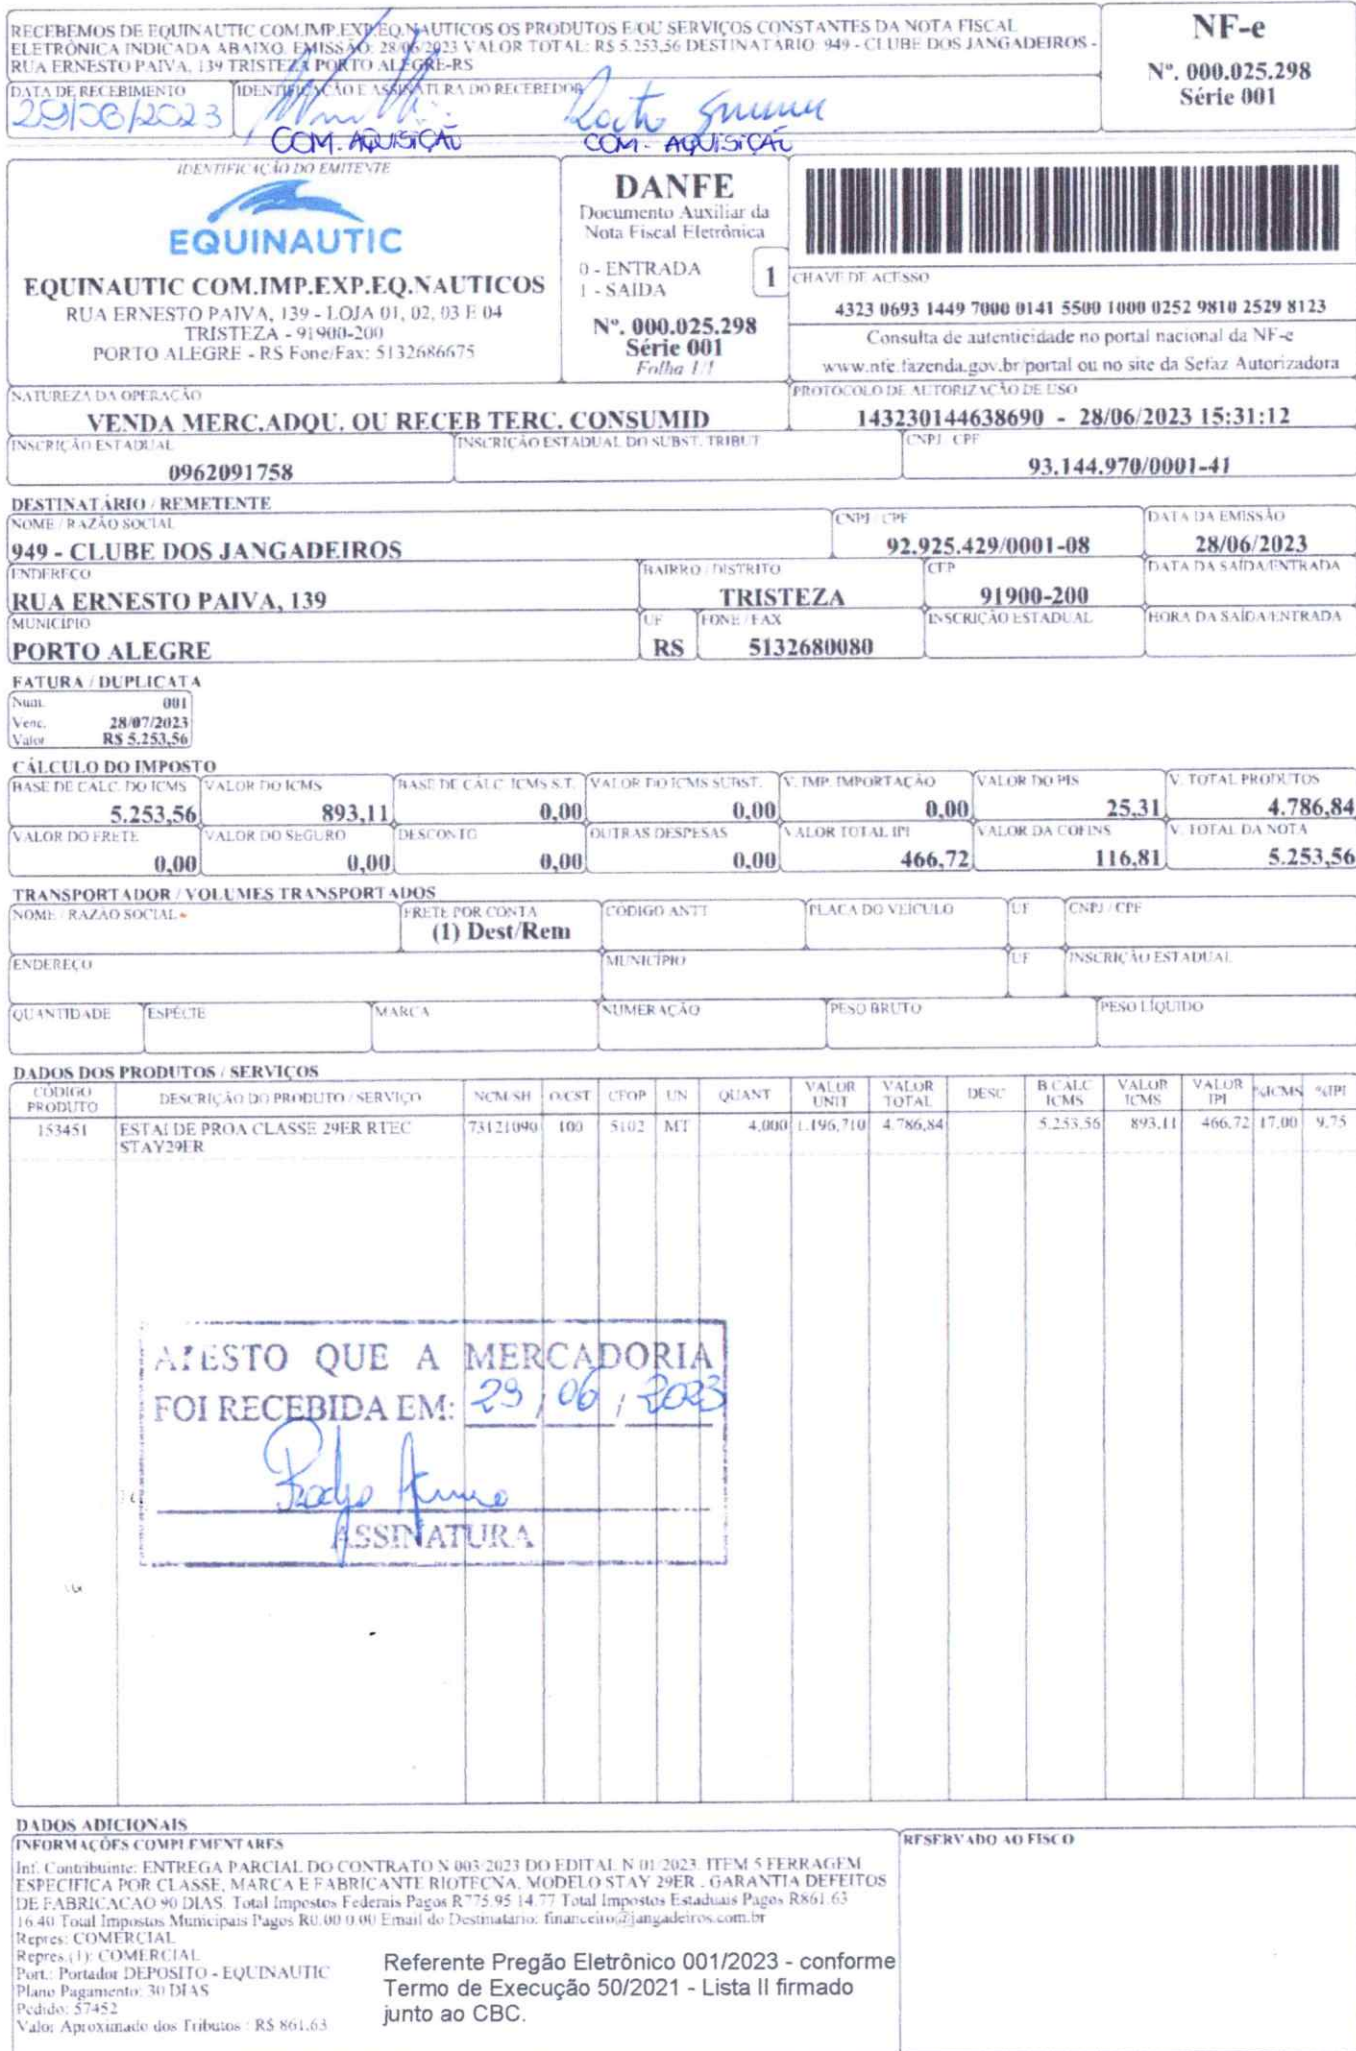 RECEBEMOS DE EQUINAUTIC COM.IMP.EXP.EQ.NAUTICOS OS PRODUTOS E/OU SERVIÇOS CONSTANTES DA NOTA FISCAL
ELETRÔNICA INDICADA ABAIXO. EMISSÃO: 28/06/2023 VALOR TOTAL: R$ 5.253,56 DESTINATÁRIO: 949 - CLUBE DOS JANGADEIROS -
RUA ERNESTO PAIVA, 139 TRISTEZA PORTO ALEGRE-RS
NF-e
Nº. 000.025.298
Série 001
DATA DE RECEBIMENTO IDENTIFICAÇÃO E ASSINATURA DO RECEBEDOR
29/06/2023
COM. AQUISIÇÃO COM. AQUISIÇÃO
IDENTIFICAÇÃO DO EMITENTE
EQUINAUTIC
EQUINAUTIC COM.IMP.EXP.EQ.NAUTICOS
RUA ERNESTO PAIVA, 139 - LOJA 01, 02, 03 E 04
TRISTEZA - 91900-200
PORTO ALEGRE - RS Fone/Fax: 5132686675
DANFE
Documento Auxiliar da
Nota Fiscal Eletrônica
0 - ENTRADA
1 - SAÍDA
1
Nº. 000.025.298
Série 001
Folha 1/1
CHAVE DE ACESSO
4323 0693 1449 7000 0141 5500 1000 0252 9810 2529 8123
Consulta de autenticidade no portal nacional da NF-e
www.nfe.fazenda.gov.br/portal ou no site da Sefaz Autorizadora
NATUREZA DA OPERAÇÃO PROTOCOLO DE AUTORIZAÇÃO DE USO
VENDA MERC.ADQU. OU RECEB TERC. CONSUMID 143230144638690 - 28/06/2023 15:31:12
INSCRIÇÃO ESTADUAL INSCRIÇÃO ESTADUAL DO SUBST. TRIBUT. CNPJ / CPF
0962091758 93.144.970/0001-41
DESTINATÁRIO / REMETENTE
NOME / RAZÃO SOCIAL CNPJ / CPF DATA DA EMISSÃO
949 - CLUBE DOS JANGADEIROS 92.925.429/0001-08 28/06/2023
ENDEREÇO BAIRRO / DISTRITO CEP DATA DA SAÍDA/ENTRADA
RUA ERNESTO PAIVA, 139 TRISTEZA 91900-200
MUNICÍPIO UF FONE / FAX INSCRIÇÃO ESTADUAL HORA DA SAÍDA/ENTRADA
PORTO ALEGRE RS 5132680080
FATURA / DUPLICATA
Num. 001
Venc. 28/07/2023
Valor R$ 5.253,56
CÁLCULO DO IMPOSTO
BASE DE CALC. DO ICMS VALOR DO ICMS BASE DE CÁLC. ICMS S.T. VALOR DO ICMS SUBST. V. IMP. IMPORTAÇÃO VALOR DO PIS V. TOTAL PRODUTOS
5.253,56 893,11 0,00 0,00 0,00 25,31 4.786,84
VALOR DO FRETE VALOR DO SEGURO DESCONTO OUTRAS DESPESAS VALOR TOTAL IPI VALOR DA COFINS V. TOTAL DA NOTA
0,00 0,00 0,00 0,00 466,72 116,81 5.253,56
TRANSPORTADOR / VOLUMES TRANSPORTADOS
NOME / RAZÃO SOCIAL FRETE POR CONTA CÓDIGO ANTT PLACA DO VEÍCULO UF CNPJ / CPF
(1) Dest/Rem
ENDEREÇO MUNICÍPIO UF INSCRIÇÃO ESTADUAL
QUANTIDADE ESPÉCIE MARCA NUMERAÇÃO PESO BRUTO PESO LÍQUIDO
DADOS DOS PRODUTOS / SERVIÇOS
CÓDIGO PRODUTO DESCRIÇÃO DO PRODUTO / SERVIÇO NCM/SH O/CST CFOP UN QUANT VALOR UNIT VALOR TOTAL DESC B.CALC ICMS VALOR ICMS VALOR IPI %ICMS %IPI
153451 ESTAI DE PROA CLASSE 29ER RTEC 73121090 100 5102 MT 4,000 1.196,710 4.786,84 5.253,56 893,11 466,72 17,00 9,75
STAY29ER
ATESTO QUE A MERCADORIA
FOI RECEBIDA EM: 29/06/2023
ASSINATURA
DADOS ADICIONAIS
INFORMAÇÕES COMPLEMENTARES RESERVADO AO FISCO
Inf. Contribuinte: ENTREGA PARCIAL DO CONTRATO N 003/2023 DO EDITAL N 01/2023. ITEM 5 FERRAGEM
ESPECIFICA POR CLASSE, MARCA E FABRICANTE RIOTECNA, MODELO STAY 29ER . GARANTIA DEFEITOS
DE FABRICACAO 90 DIAS. Total Impostos Federais Pagos R775.95 14.77 Total Impostos Estaduais Pagos R861.63
16.40 Total Impostos Municipais Pagos R0.00 0.00 Email do Destinatário: financeiro@jangadeiros.com.br
Repres: COMERCIAL
Repres.(1): COMERCIAL
Port.: Portador DEPOSITO - EQUINAUTIC
Plano Pagamento: 30 DIAS
Pedido: 57452
Valor Aproximado dos Tributos : R$ 861.63
Referente Pregão Eletrônico 001/2023 - conforme
Termo de Execução 50/2021 - Lista II firmado
junto ao CBC.